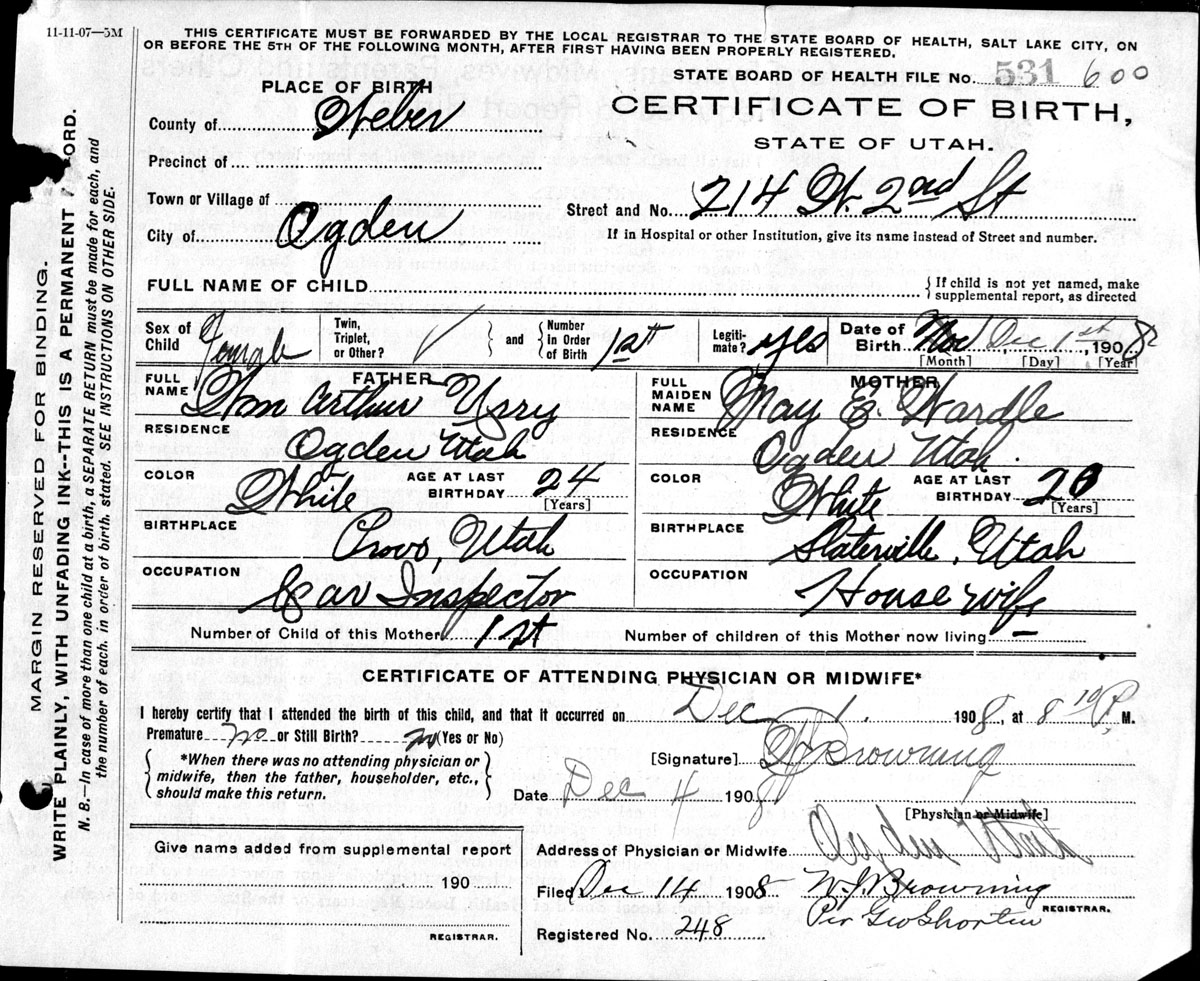 11-11-07—5M
THIS CERTIFICATE MUST BE FORWARDED BY THE LOCAL REGISTRAR TO THE STATE BOARD OF HEALTH, SALT LAKE CITY, ON
OR BEFORE THE 5TH OF THE FOLLOWING MONTH, AFTER FIRST HAVING BEEN PROPERLY REGISTERED.
STATE BOARD OF HEALTH FILE No. 531 600
PLACE OF BIRTH
CERTIFICATE OF BIRTH,
STATE OF UTAH.
County of Weber
Precinct of
Town or Village of
City of Ogden
Street and No. 214 W. 2nd St
If in Hospital or other Institution, give its name instead of Street and number.
FULL NAME OF CHILD
If child is not yet named, make
supplemental report, as directed
Sex of Child Female
Twin, Triplet, or Other?
and
Number in Order of Birth 1st
Legiti-mate? yes
Date of Birth Nov Dec 1st, 1908
[Month] [Day] [Year]
FATHER
FULL NAME Wm Arthur Ussy
RESIDENCE Ogden Utah
COLOR White
AGE AT LAST BIRTHDAY 24
[Years]
BIRTHPLACE Provo, Utah
OCCUPATION Car Inspector
MOTHER
FULL MAIDEN NAME May E. Wardle
RESIDENCE Ogden Utah.
COLOR White
AGE AT LAST BIRTHDAY 20
[Years]
BIRTHPLACE Slaterville, Utah
OCCUPATION House wife
Number of Child of this Mother 1st
Number of children of this Mother now living –
CERTIFICATE OF ATTENDING PHYSICIAN OR MIDWIFE*
I hereby certify that I attended the birth of this child, and that it occurred on Dec 1. 1908, at 8 10 P. M.
Premature no or Still Birth? no (Yes or No)
*When there was no attending physician or
midwife, then the father, householder, etc.,
should make this return.
[Signature] Browning
Date Dec 4 1908
[Physician or Midwife]
Address of Physician or Midwife Ogden Utah
Give name added from supplemental report
190
REGISTRAR.
Filed Dec 14 1908
W. J. Browning
REGISTRAR.
Per Geo Shorten
Registered No. 248
MARGIN RESERVED FOR BINDING.
WRITE PLAINLY, WITH UNFADING INK--THIS IS A PERMANENT
N. B.—In case of more than one child at a birth, a SEPARATE RETURN must be made for each, and
the number of each. in order of birth. stated. SEE INSTRUCTIONS ON OTHER SIDE.